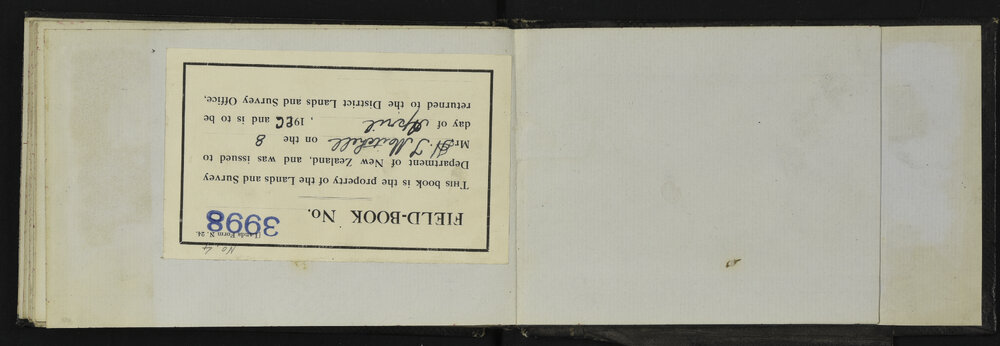 No. 4
[Lands Form N. 24.
FIELD-BOOK No. 3998
THIS book is the property of the Lands and Survey
Department of New Zealand, and was issued to
Mr. H. J. Mitchell on the 8
day of April, 19 and is to be
returned to the District Lands and Survey Office,